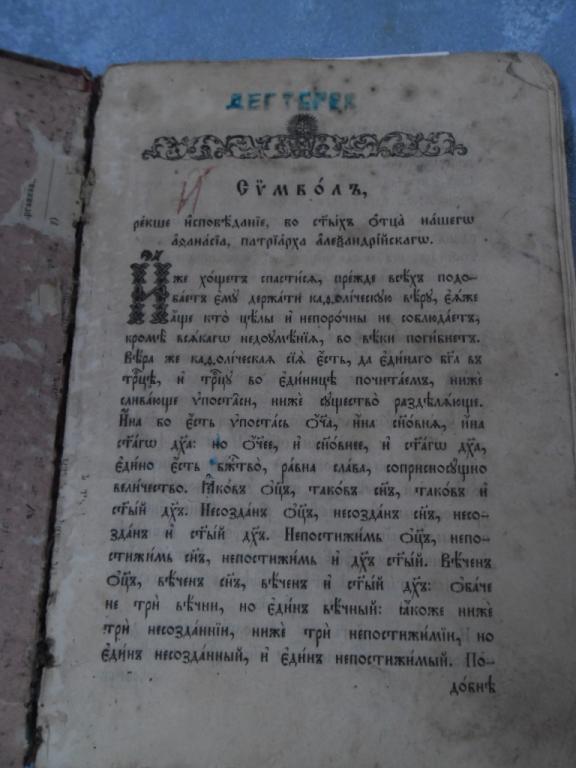 ДЕГТЕРЕВ
Сѷмво́лъ,
ре́кше и҆сповѣ́данїе, во ст҃ы́хъ ѻ҆тца̀ на́шегѡ
а҆ѳана́сїа, патрїа́рха а҆леѯандрі́йскагѡ.
И҆́же хо́щетъ спасти́сѧ, пре́жде всѣ́хъ подо-
ба́етъ є҆мꙋ̀ держа́ти каѳоли́ческꙋю вѣ́рꙋ, є҆ѧ́же
а҆́ще кто̀ цѣ́лы и҆ непоро́чны не соблюда́етъ,
кромѣ̀ всѧ́кагѡ недоꙋмѣ́нїѧ, во вѣ́ки поги́бнетъ.
Вѣ́ра же каѳоли́ческаѧ сїѧ̀ є҆́сть, да є҆ди́наго бг҃а въ
трⷪ҇цѣ, и҆ трⷪ҇цꙋ во є҆ди́ницѣ почита́емъ, нижѐ
слива́юще ѵ҆поста̑си, нижѐ сꙋщество̀ раздѣлѧ́юще.
И҆́на бо є҆́сть ѵ҆поста́сь ѻ҆́ч҃а, и҆́на сн҃о́внѧ, и҆́на
ст҃а́гѡ дх҃а: но ѻ҆́ч҃ее, и҆ сн҃о́внее, и҆ ст҃а́гѡ дх҃а,
є҆ди́но є҆́сть бж҃тво̀, ра́вна сла́ва, соприсносꙋ́щно
вели́чество. Ꙗ҆ко́въ ѻ҆ц҃ъ, тако́въ сн҃ъ, тако́въ и҆
ст҃ы́й дх҃ъ. Несозда́нъ ѻ҆ц҃ъ, несозда́нъ сн҃ъ, несо-
зда́нъ и҆ ст҃ы́й дх҃ъ. Непостижи́мь ѻ҆ц҃ъ, непо-
стижи́мь сн҃ъ, непостижи́мь и҆ дх҃ъ ст҃ы́й. Вѣ́ченъ
ѻ҆ц҃ъ, вѣ́ченъ сн҃ъ, вѣ́ченъ и҆ ст҃ы́й дх҃ъ: ѻ҆ба́че
не трѝ вѣ̑чни, но є҆ди́нъ вѣ́чный: ꙗ҆́коже нижѐ
трѝ несозда́ннїи, нижѐ трѝ непостижи́мїи, но
є҆ди́нъ несозда́нный, и҆ є҆ди́нъ непостижи́мый. По-
до́бнѣ